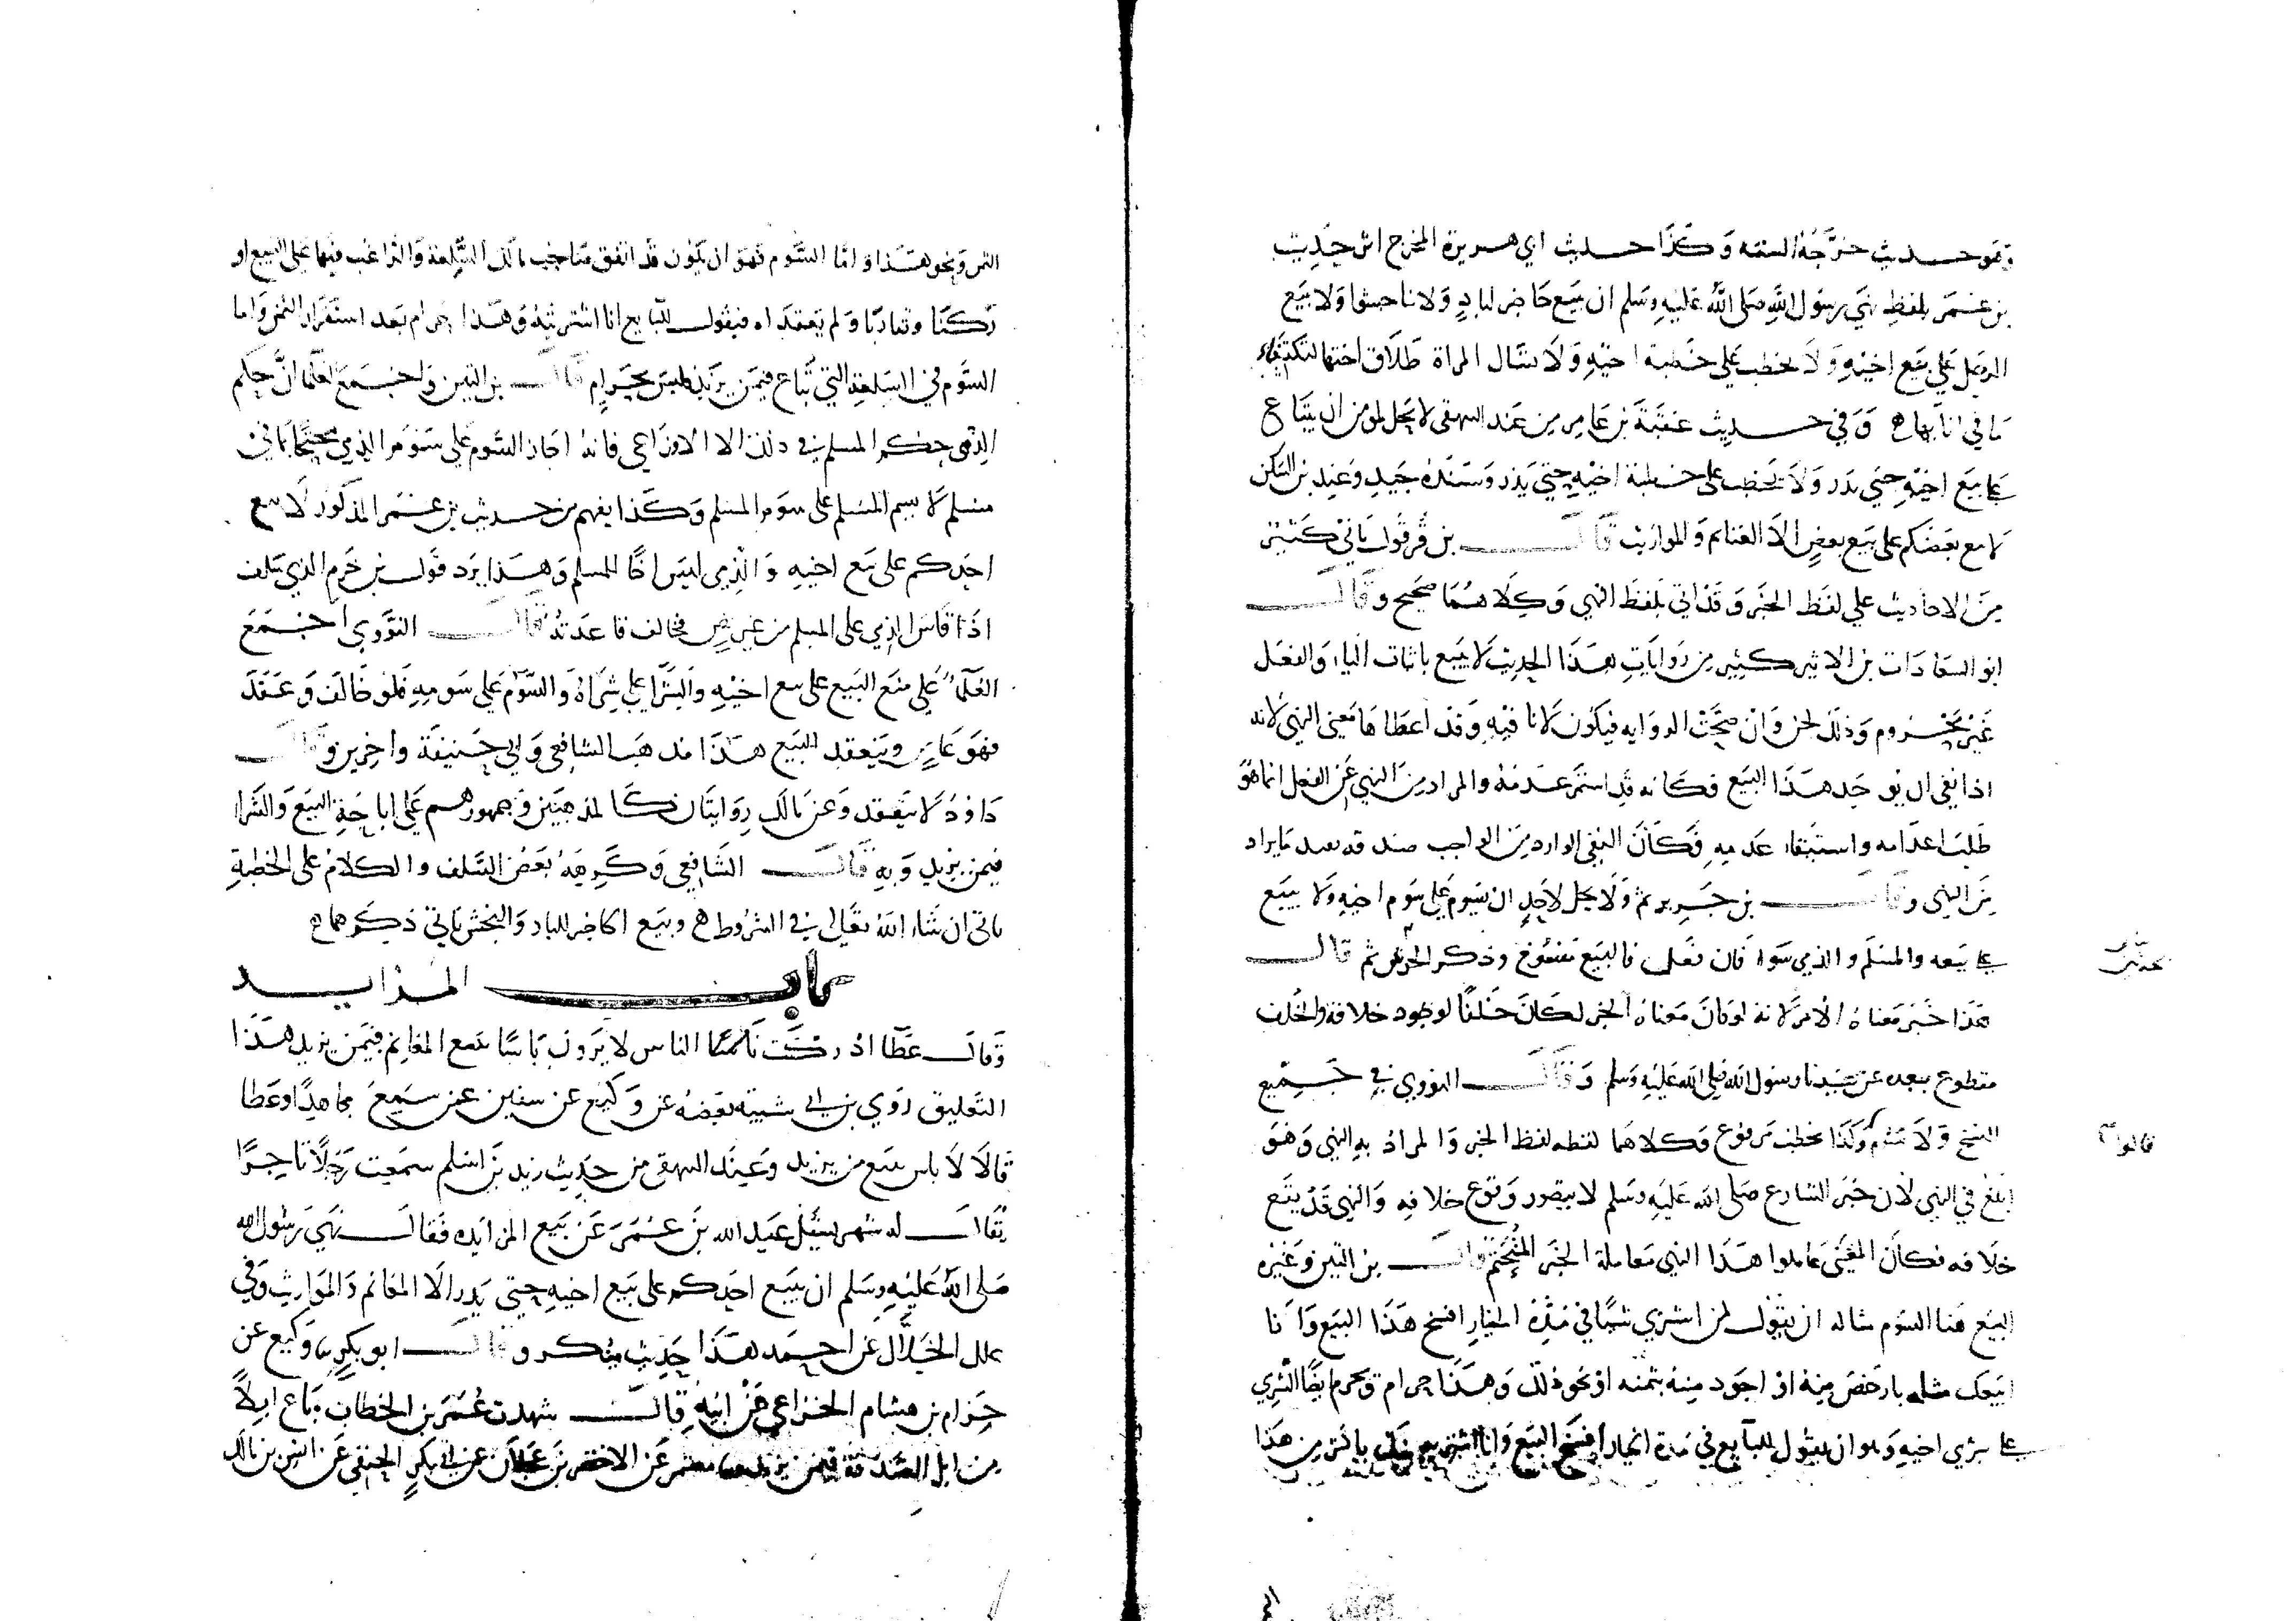 وهو حديث خرَّجه الستة وكذا حديث ابي هريرة المخرج اثر حديث
بن عمر بلفظ نهي رسول الله صلى الله عليه وسلم ان يبيع حاضر لباد ولا تناجشوا ولا يبيع
الرجل على بيع اخيه ولا يخطب على خطبة اخيه ولا تسال المراة طلاق اختها لتكتفئ
ما في انائها وفي حديث عقبة بن عامر من عند البيهقي لا يحل لمومن ان يبتاع
على بيع اخيه حتى يذر ولا يخطب على خطبة اخيه حتى يذر وسنده جيد وعند بن السكن
لا يبع بعضكم على بيع بعض الا الغنائم والمواريث قال بن قرقول ياتي كثير
من الاحاديث على لفظ الخبر وقد اتي بلفظ النهي وكلاهما صحيح وقال
ابو السعادات بن الاثير كثير من روايات هذا الحديث لا يبيع باثبات الياء والفعل
غير مجزوم وذلك لحن وان صحت الرواية فيكون لا نافيه وقد اعطاها معنى النهي لانه
اذا نفي ان يوجد هذا البيع فكانه قد استمر عدمه والمراد من النهي عن الفعل انما هو
طلب اعدامه واستبقاء عدمه فكان النفي الوارد من الواجب صدقه يفيد ما يراد
من النهي وقال بن جرير ثم ولا يحل لاحد ان يسوم على سوم اخيه ولا يبيع
على بيعه والمسلم والذمي سواء فان فعل فالبيع مفسوخ وذكر ثم قال
هذا خبر معناه الامر لانه لو كان معناه الخبر لكان خلفًا لوجود خلافه والخلف
مقطوع ببعده عن سيدنا رسول الله صلى الله عليه وسلم وقال النووي في جميع
النسخ ولا يسوم وكذا يخطب مرفوع وكلاهما لفظه لفظ الخبر والمراد به النهي وهو
قالوا
ابلغ في النهي لان خبر الشارع صلى الله عليه وسلم لا يتصور وقوع خلافه والنهي قد يقع
خلافه فكان المعنى عاملوا هذا النهي معاملة الخبر المتحتم قال بن التين وغيره
البيع هنا السوم مثاله ان يقول لمن اشترى شيئًا في مدة الخيار افسخ هذا البيع وانا
ابيعك مثله بارخص منه او اجود منه بثمنه او نحو ذلك وهذا حرام ويحرم ايضًا الشري
على شري اخيه وهو ان يقول للبايع في مدة الخيار افسخ البيع وانا اشتريه منك باكثر من هذا
الثمن ونحو هذا واما السوم فهو ان يكون قد اتفق صاحب مالك السلعة والراغب فيها على البيع او
ركنا وتقاربا ولم يعقداه فيقول للبايع انا اشتريته وهذا حرام بعد استقرار الثمن واما
السوم في السلعة التي تباع فيمن يزيد فليس بحرام قال بن التين واجمع العلماء ان حكم
الذمي حكم المسلم في ذلك الا الاوزاعي فانه اجاز السوم على سوم الذمي محتجًا بما في
مسلم لا يسم المسلم على سوم المسلم وكذا يفهم من حديث بن عمر المذكور لا يبع
احدكم على بيع اخيه والذمي ليس اخًا للمسلم وهذا يرد قول بن حزم الذي سلف
اذا قاس الذمي على المسلم من غير نص فخالف قاعدته قال النووي اجمع
العلماء على منع البيع على بيع اخيه والشرا على شراه والسوم على سومه فلو خالف وعقد
فهو عاصٍ وينعقد البيع هذا مذهب الشافعي وابي حنيفة واخرين وقال
داود لا ينعقد وعن مالك روايتان كالمذهبين وجمهورهم على اباحة البيع والشرا
فيمن يزيد وبه قال الشافعي وكرهه بعض السلف والكلام على الخطبة
ياتي ان شاء الله تعالى في الشروط وبيع الحاضر للباد والنجش ياتي ذكرهما
باب المزايد
وقال عطا ادركت الناس لا يرون باسًا ببيع المغانم فيمن يزيد هذا
التعليق روي بن ابي شيبة بعضه عن وكيع عن سفين عمن سمع مجاهدًا وعطا
قالا لا باس ببيع من يزيد وعند البيهقي من حديث زيد بن اسلم سمعت رجلًا تاجرًا
يقال له شهر يسئل عبد الله بن عمر عن بيع المزايدة فقال نهي رسول الله
صلى الله عليه وسلم ان يبيع احدكم على بيع اخيه حتى يذر الا المغانم والمواريث وفي
علل الخلال عن احمد هذا حديث منكر وقال ابو بكر وكيع عن
حزام بن هشام الخزاعي عن ابيه قال شهدت عمر بن الخطاب باع ابلاً
من ابل الصدقة فيمن يزيد معتمر عن الاخضر بن عجلان عن ابي بكر الحنفي عن انس بن مالك